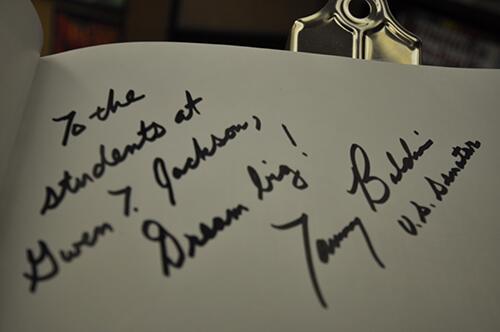 To the
students at
Gwen T. Jackson,
Dream big!
Tammy Baldwin
U.S. Senator